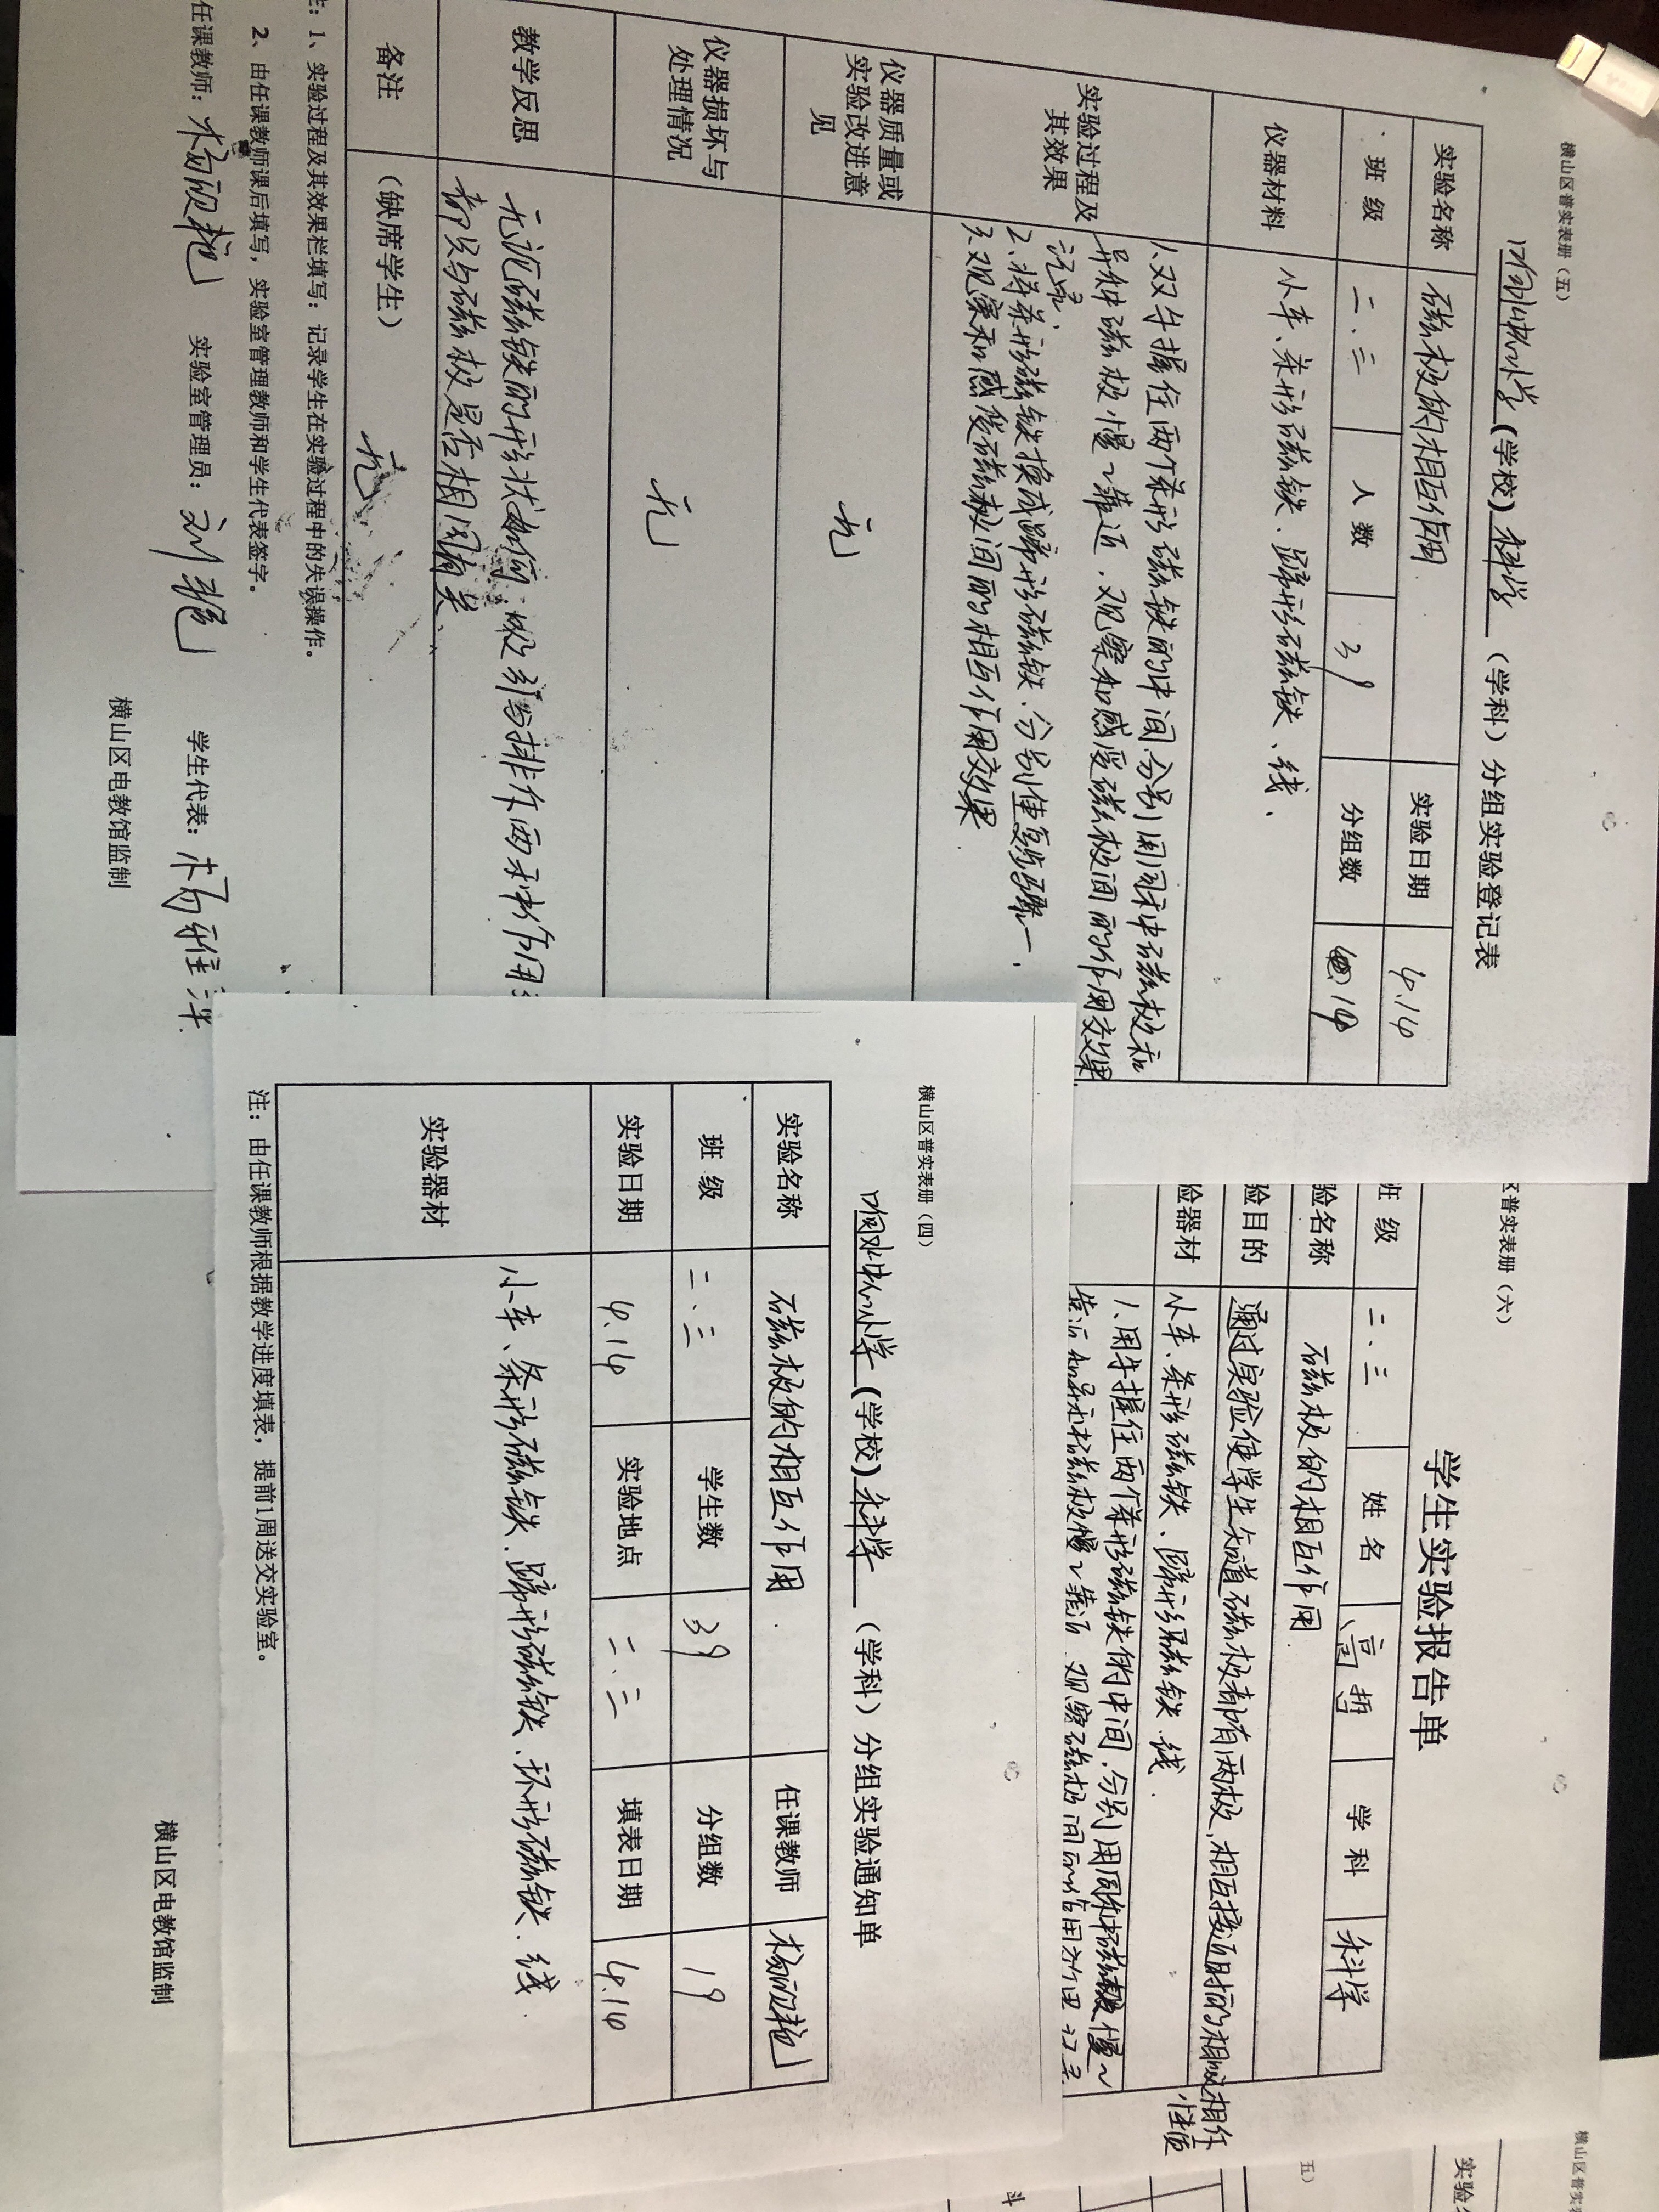 横山区普实表册（五）
(学校) 科学 （学科）分组实验登记表
实验名称 磁极的相互作用 实验日期 4.14
班 级 二、三 人 数 39 分组数 19
仪器材料 小车、条形磁铁、蹄形磁铁、线、
实验过程及其效果
1、双手握住两个条形磁铁的中间，分别用同种磁极和
异种磁极慢慢靠近，观察和感受磁极间的作用效果
记录、
2、将条形磁铁换成蹄形磁铁，分别重复步骤一，
3、观察和感受磁极间的相互作用效果
仪器质量或实验改进意见 无
仪器损坏与处理情况 无
教学反思
无论磁铁的形状如何，吸引与排斥两种作用
都只与磁极是否相同有关
备注 （缺席学生） 无
注：1、实验过程及其效果栏填写：记录学生在实验过程中的失误操作。
2、由任课教师课后填写，实验室管理教师和学生代表签字。
任课教师： 实验室管理员：刘艳 学生代表：杨雅洋
横山区电教馆监制
横山区普实表册（四）
(学校) 科学 （学科）分组实验通知单
实验名称 磁极的相互作用 任课教师
班 级 二、三 学生数 39 分组数 19
实验日期 4.14 实验地点 二、三 填表日期 4.14
实验器材 小车、条形磁铁、蹄形磁铁、环形磁铁、线
注：由任课教师根据教学进度填表，提前1周送交实验室。
横山区电教馆监制
区普实表册（六）
学生实验报告单
班 级 二、三 姓 名 高哲 学 科 科学
验名称 磁极的相互作用
验目的 通过实验使学生知道磁极都有两极，相互接近时的相吸相斥性质
验器材 小车、条形磁铁、蹄形磁铁、线
1、用手握住两个条形磁铁的中间，分别用同种磁极慢慢
横山区普实
实验名
五）